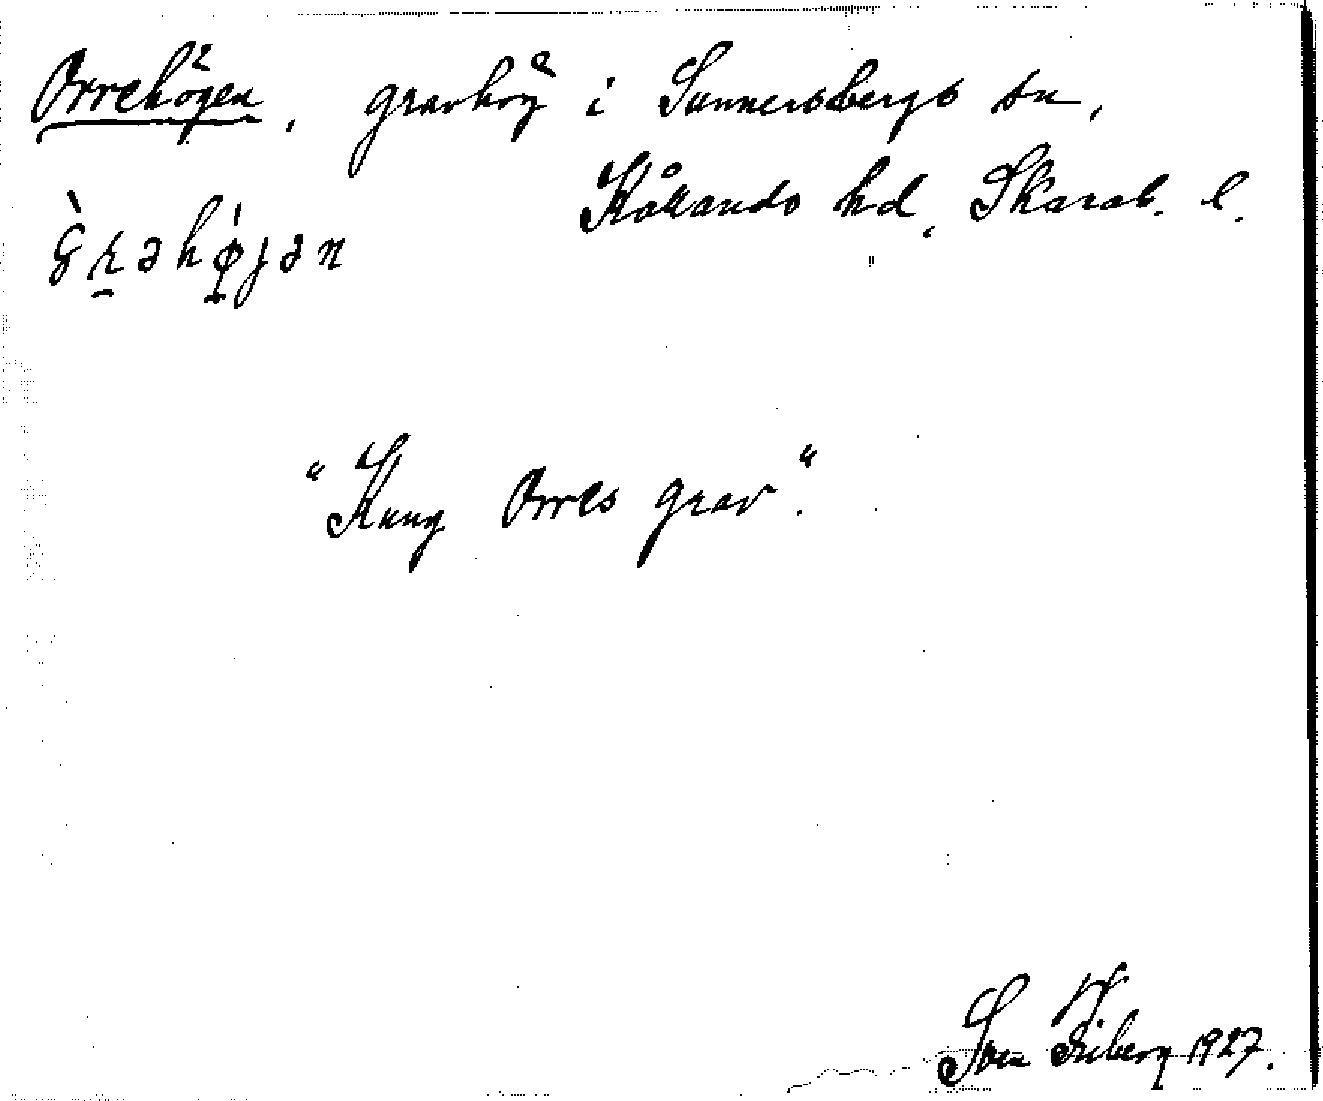 Orrehögen, gravhög i Sunnersbergs sn,
Kållands hd, Skarab. l.
"Kung Orres grav."
Sven Friberg 1927.